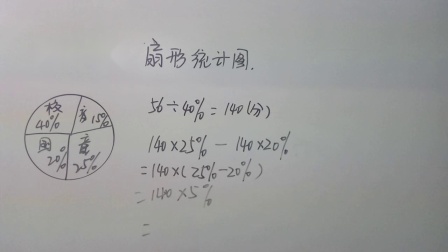 扇形统计图.
校
40%
言15%
图
20%
查
25%
56÷40%=140(分)
140×25%-140×20%
=140×(25%-20%)
=140×5%
=